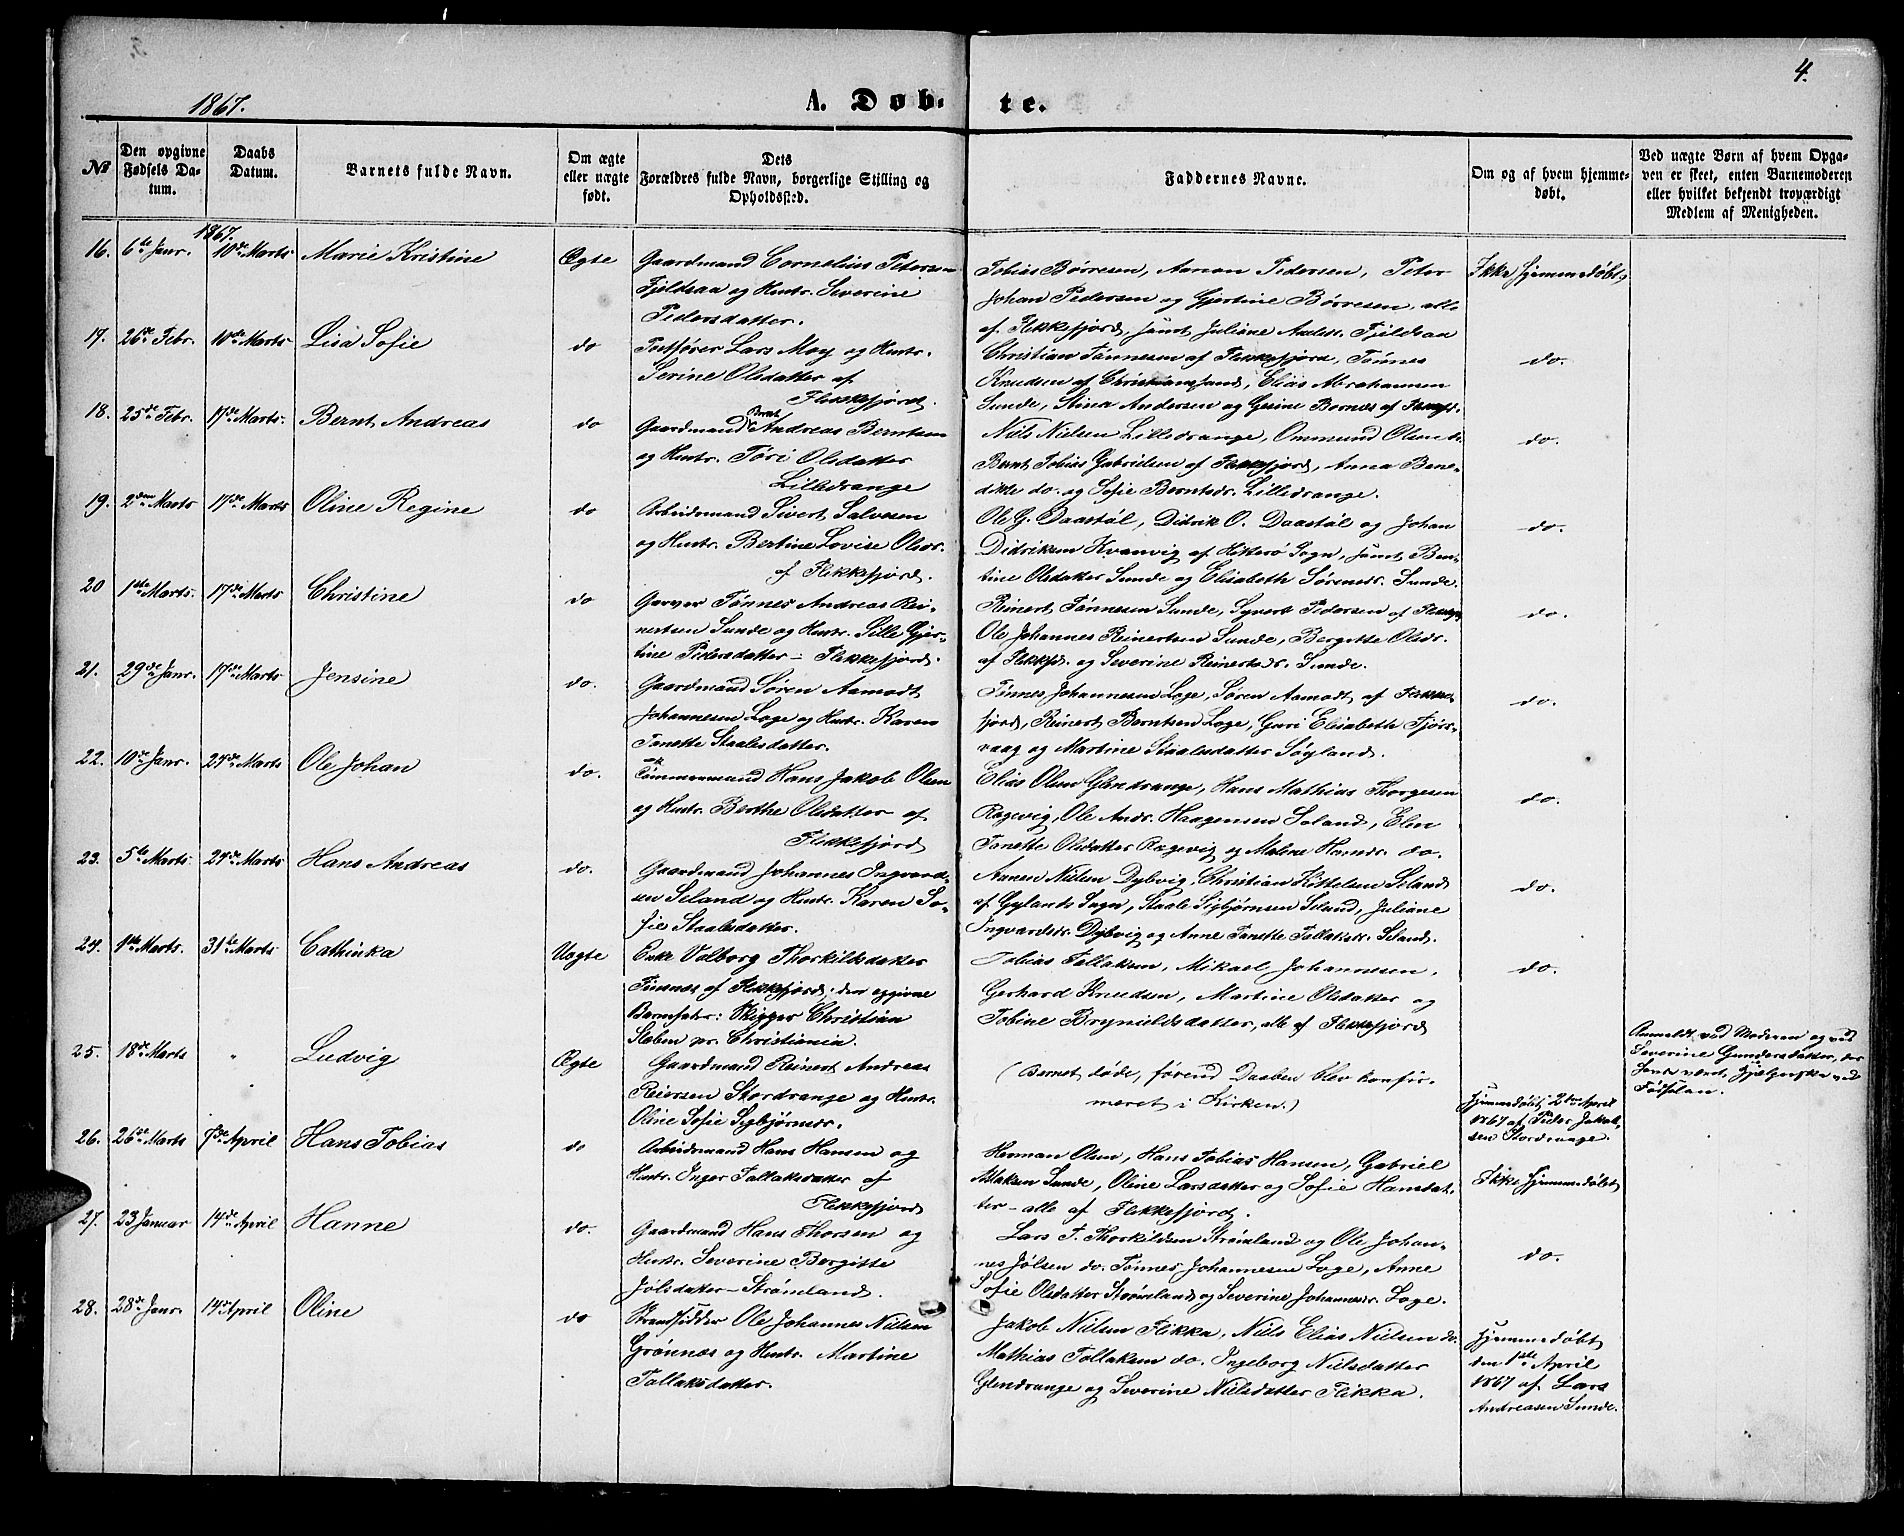 4.
1867.
A. Døb-
te.
No
Den opgivne Fødsels Da-tum.
Daabs Datum.
Barnets fulde Navn.
Om ægte eller uægte født.
Dets Forældres fulde Navn, borgerlige Stilling og Opholdssted.
Faddernes Navne.
Om og af hvem hjemme-døbt.
Ved uægte Børn af hvem Opga-ven er skeet, enten Barnemoderen eller hvilket bekjendt troværdigt Medlem af Menigheden.
1867.
16. 6te Janr. 10de Marts Marie Kristine Ægte
Gaardmand Cornelius Petersen
Fjeldsaa og Hustr. Severine
Pedersdatter.
Tobias Børresen, Aanon Pedersen, Peter
Johan Pedersen og Gjertine Børresen, alle
af Flekkefjord, samt Juliane Fjeldsaa
Ikke hjemmedøbt
17. 26de Febr. 10de Marts Lisa Sofie do
Postfører Lars Moy og Hustr.
Serine Olsdatter af
Flekkefjord.
Christian Tønnesen af Flekkefjord, Tønnes
Knudsen af Christianssand, Elias Abrahamsen
Sunde, Stina Andersen og Gesine Bornæs af
do.
18. 25de Febr. 17de Marts. Bernt Andreas do
Gaardmand Bernt Andreas Berntsen
og Hustr. Tøri Olsdatter
Lilledrange
Niels Nielsen Lilledrange, Ommund Olsen do.
Bernt Tobias Gabrielsen af Flekkefjord, Anna Bene-
dikte do. og Sofie Berntsdr. Lilledrange.
do.
19. 2den Marts 17de Marts Oline Regine do
Arbeidsmand Sivert Salvesen
og Hustr. Bertine Lovise Olsdr.
af Flekkefjord.
Ole G. Daastøl, Didrik O. Daastøl og Johan
Didriksen Kvanvig af Hitterø Sogn, samt Ben-
tine Olsdatter Sunde og Elisabeth Sørensdr. Sunde.
do.
20 1ste Marts. 17de Marts Christine do
Garver Tønnes Andreas Rei-
nertsen Sunde og Hustr. Sille Gjer-
tine Pedersdatter - Flekkefjord.
Reinert Tønnesen Sunde, Syvert Pedersen af
Ole Johannes Reinertsen Sunde, Bergitte Olsdr.
af Flekkfd. og Severine Reinertsdr. Sunde.
do.
21. 29de Janr. 17de Marts Jensine do.
Gaardmand Søren Aamodt
Johannesen Loge og Hustr. Karen
Tanette Staalesdatter.
Tønnes Johannesen Loge, Søren Aamodt af Flekke-
fjord, Reinert Berntsen Loge, Guri Elisabeth Fjøs-
vaag og Martine Staalesdatter Søyland.
do.
22. 10de Janr. 24de Marts Ole Johan do.
Tømmermand Hans Jakob Olsen
og Hustr. Berthe Olsdatter af
Flekkefjord
Elias Olsen Glendrange, Hans Mathias Thorgesen
Rægevig, Ole Andr. Haagensen Seland, Elen
Tanette Olsdatter Rægevig og Malene Hansdr. do.
do.
23. 5te Marts. 24de Marts Hans Andreas do.
Gaardmand Johannes Ingvard-
sen Seland og Hustr. Karen So-
fie Staalesdatter.
Aanen Nielsen Dybvig, Christian Kittelsen Seland
af Gylands Sogn, Staale Sigbjørnsen Selund, Juliane
Ingvardsdr. Dybvig og Anne Tanette Tollaksdr. Seland.
do.
24. 1ste Marts. 31te Marts Cathinka Uægte
Enke Valborg Thorkildsdatter
af Flekkefjord; den opgivne
Barnefader: Skipper Christian
pr. Christiania.
Tobias Tollaksen, Mikael Johannesen,
Gerhard Knudsen, Martine Olsdatter og
Tobine Brynildsdatter, alle af Flekkefjord
do.
Anmeldt ved Moderen og ved
Severine Gundersdatter, der
havde været Hjelperske ved
Fødselen.
25. 18de Marts " Ludvig Ægte
Gaardmand Reinert Andreas
Reiersen Stordrange og Hustr.
Oline Sofie Sigbjørnsdr.
(Barnet døde, førend Daaben blev konfir-
meret i Kirken.)
Hjemmedøbt 2den April
1867 af Peder Jakob-
sen Stordrange.
26. 26de Marts 7de April Hans Tobias do
Arbeidsmand Hans Hansen og
Hustr. Inger Tallaksdatter af
Flekkefjord
Herman Olsen, Hans Tobias Hansen, Gabriel
Aslaksen Sunde, Oline Larsdatter og Sofie Hansdat-
ter - alle af Flekkefjord.
Ikke hjemmedøbt
27. 23 Januar 14de April Hanne do.
Gaardmand Hans Thorsen og
Hustr. Severine Bergitte
Jølsdatter - Strømland.
Lars T. Thorkildsen Strømland og Ole Johan-
nes Jølsen do. Tønnes Johannesen Loge, Anne
Sofie Olsdatter Strømland og Severine Johannesdr. Loge.
do.
28. 28de Janr. 14de April Oline do
Strandsidder Ole Johannes Nielsen
Grønnæs og Hustr. Martine
Tallaksdatter.
Jakob Nielsen Flikka, Niels Elias Nielsen do.
Mathias Tollaksen do. Ingeborg Nielsdatter
Glendrange og Severine Nielsdatter Flikka.
Hjemmedøbt
den 1ste April
1867 af Lars
Andreasen Sunde.